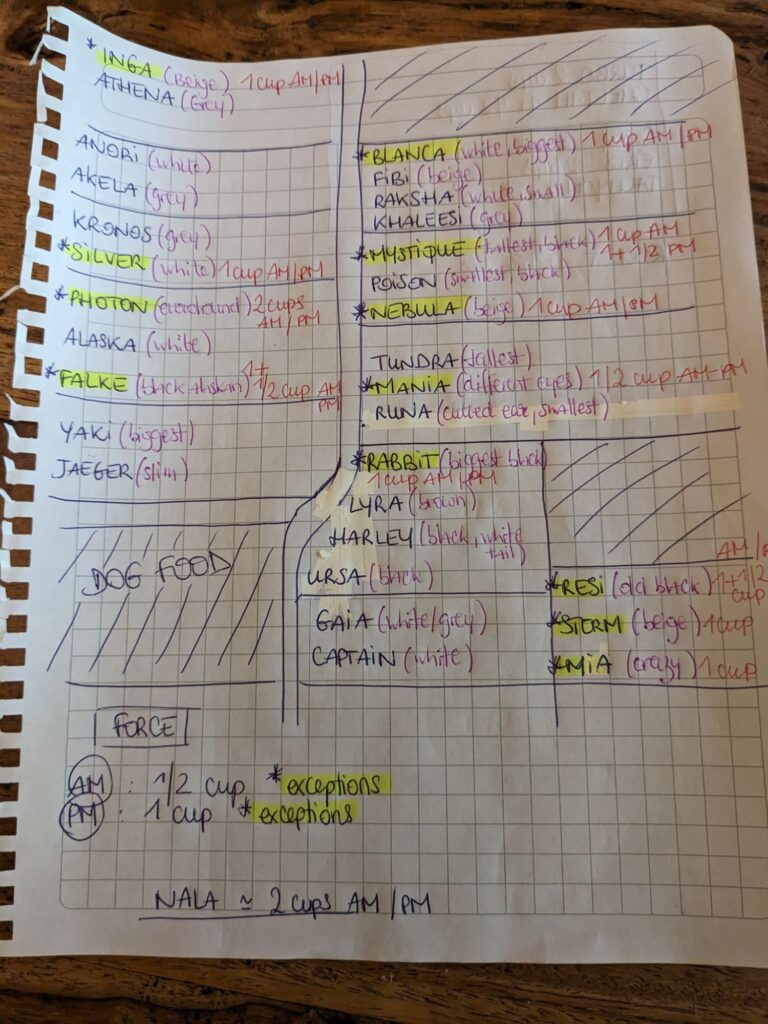 *INGA (Beige) 1 cup AM/PM
ATHENA (Grey)
ANORI (white)
AKELA (grey)
KRONOS (grey)
*SiLVER (white) 1 cup AM/PM
*PHOTON 2 cups
AM/PM
ALASKA (white)
*FALKE 1+
1/2 cup AM
PM
YAKi (biggest)
JAEGER (slim)
DOG FOOD
*BLANCA (white, biggest) 1 cup AM/PM
FiBi (beige)
RAKSHA (white, small)
KHALEESI (grey)
*MYSTiQUE (tallest, black) 1 cup AM
1+1/2 PM
POiSON (smallest, black)
*NEBULA (beige) 1 cup AM/PM
TUNDRA (tallest)
*MANiA (different eyes) 1/2 cup AM-PM
RUNA (cutted ear, smallest)
*RABBiT (biggest black)
1 cup AM/PM
LYRA (brown)
HARLEY (black, white
tail)
URSA (black)
GAiA (white/grey)
CAPTAiN (white)
AM/P
*RESi (old black) 1+1/2
cup
*STORM (beige) 1 cup
*MiA (crazy) 1 cup
FORCE
AM : 1/2 cup *exceptions
PM : 1 cup *exceptions
NALA ≃ 2 cups AM/PM